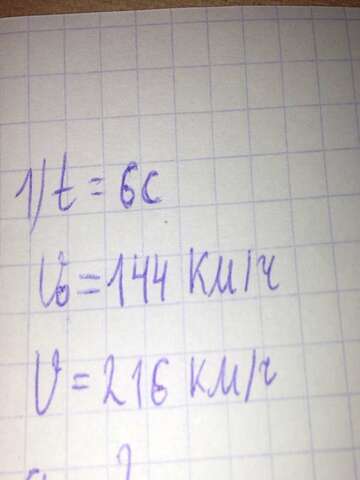 1) t = 6с
V₀ = 144 км/ч
V = 216 км/ч
?